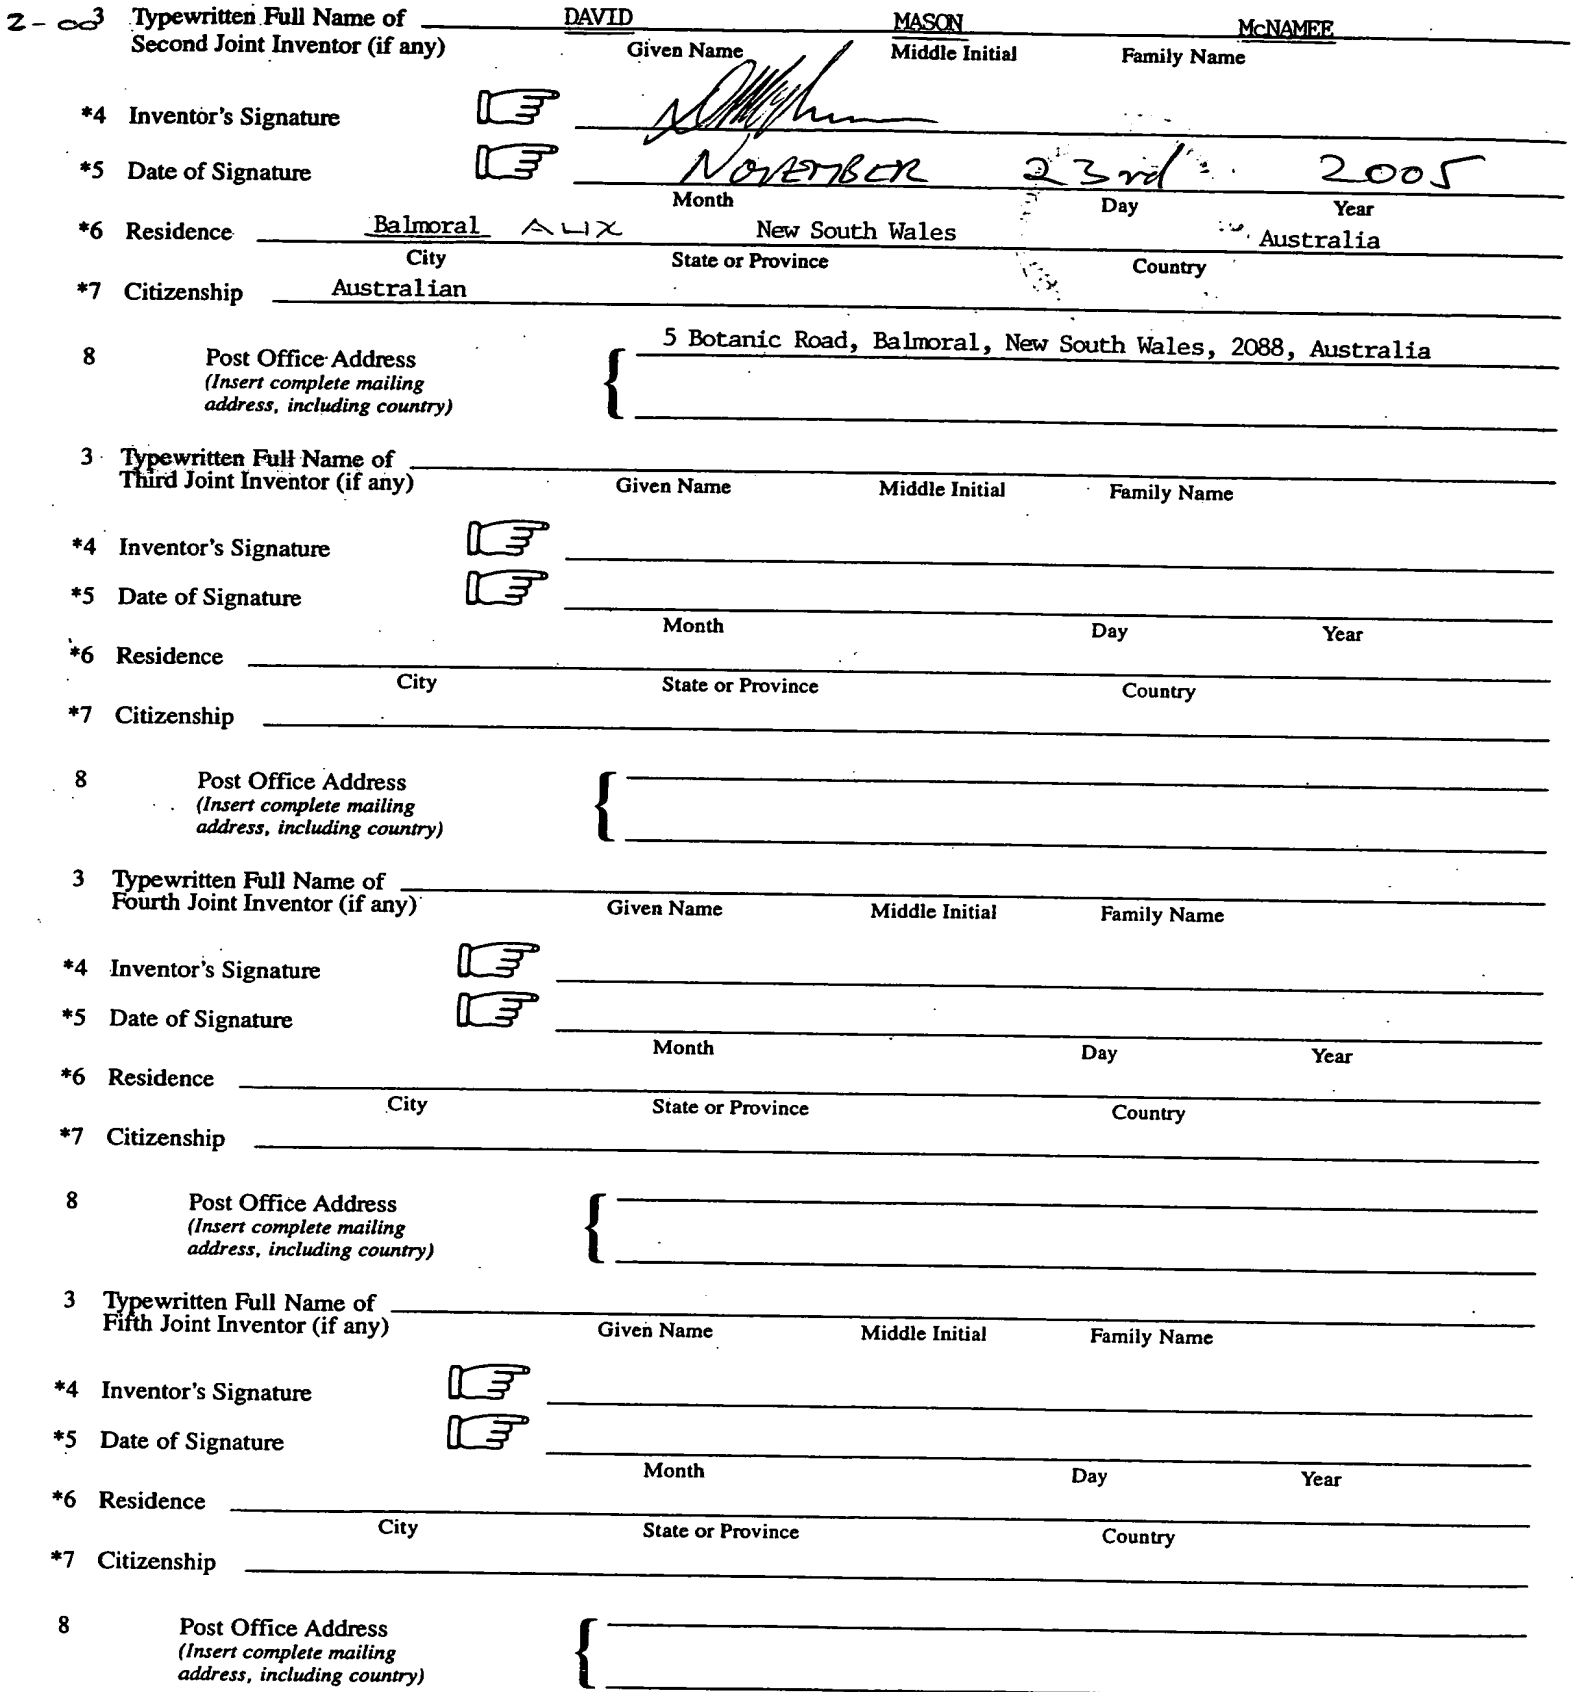 2-00 3 Typewritten Full Name of DAVID MASON McNAMEE
Second Joint Inventor (if any) Given Name Middle Initial Family Name
*4 Inventor's Signature
*5 Date of Signature NOVEMBER 23rd 2005
Month Day Year
*6 Residence Balmoral AUX New South Wales Australia
City State or Province Country
*7 Citizenship Australian
8 Post Office Address 5 Botanic Road, Balmoral, New South Wales, 2088, Australia
(Insert complete mailing
address, including country)
3 Typewritten Full Name of
Third Joint Inventor (if any) Given Name Middle Initial Family Name
*4 Inventor's Signature
*5 Date of Signature
Month Day Year
*6 Residence
City State or Province Country
*7 Citizenship
8 Post Office Address
(Insert complete mailing
address, including country)
3 Typewritten Full Name of
Fourth Joint Inventor (if any) Given Name Middle Initial Family Name
*4 Inventor's Signature
*5 Date of Signature
Month Day Year
*6 Residence
City State or Province Country
*7 Citizenship
8 Post Office Address
(Insert complete mailing
address, including country)
3 Typewritten Full Name of
Fifth Joint Inventor (if any) Given Name Middle Initial Family Name
*4 Inventor's Signature
*5 Date of Signature
Month Day Year
*6 Residence
City State or Province Country
*7 Citizenship
8 Post Office Address
(Insert complete mailing
address, including country)